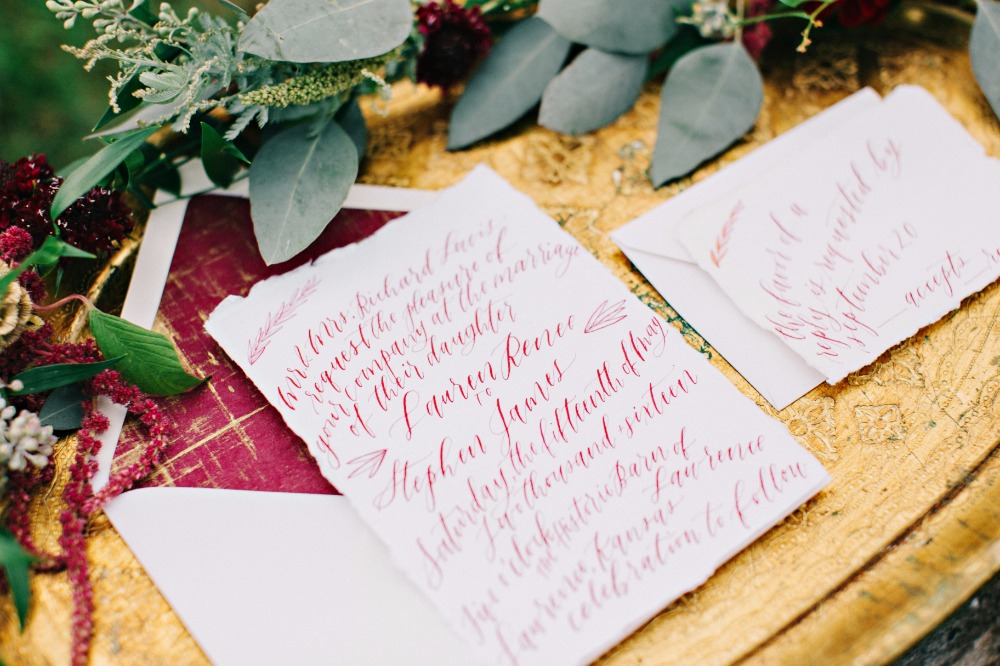 Mr. & Mrs. Richard Lewis
request the pleasure of
your company at the marriage
of their daughter
Lauren Renee
to
Stephen James
Saturday, the fifteenth of may
two thousand & sixteen
o'clock Historic Barn of
the Lawrence
Lawrence, Kansas
celebration to follow
the favor of a
rsvp is requested by
september 20
accepts